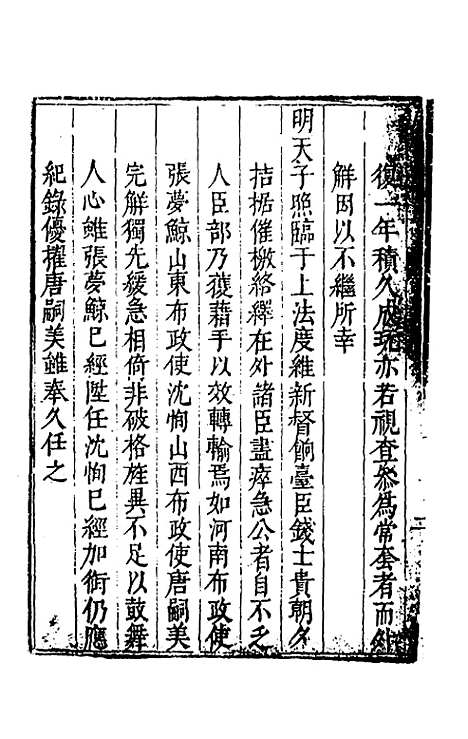 復一年積久成玩亦若視查叅爲常套者而外
解因以不繼所幸
明天子照臨于上法度維新督餉臺臣錢士貴朝夕
拮据催檄絡繹在外諸臣盡瘁急公者自不乏
人臣部乃獲藉手以效轉輸焉如河南布政使
張夢鯨山東布政使沈恂山西布政使唐嗣美
完解獨先緩急相倚非破格旌異不足以鼓舞
人心雖張夢鯨已經陞任沈恂已經加銜仍應
紀錄優擢唐嗣美雖奉久任之